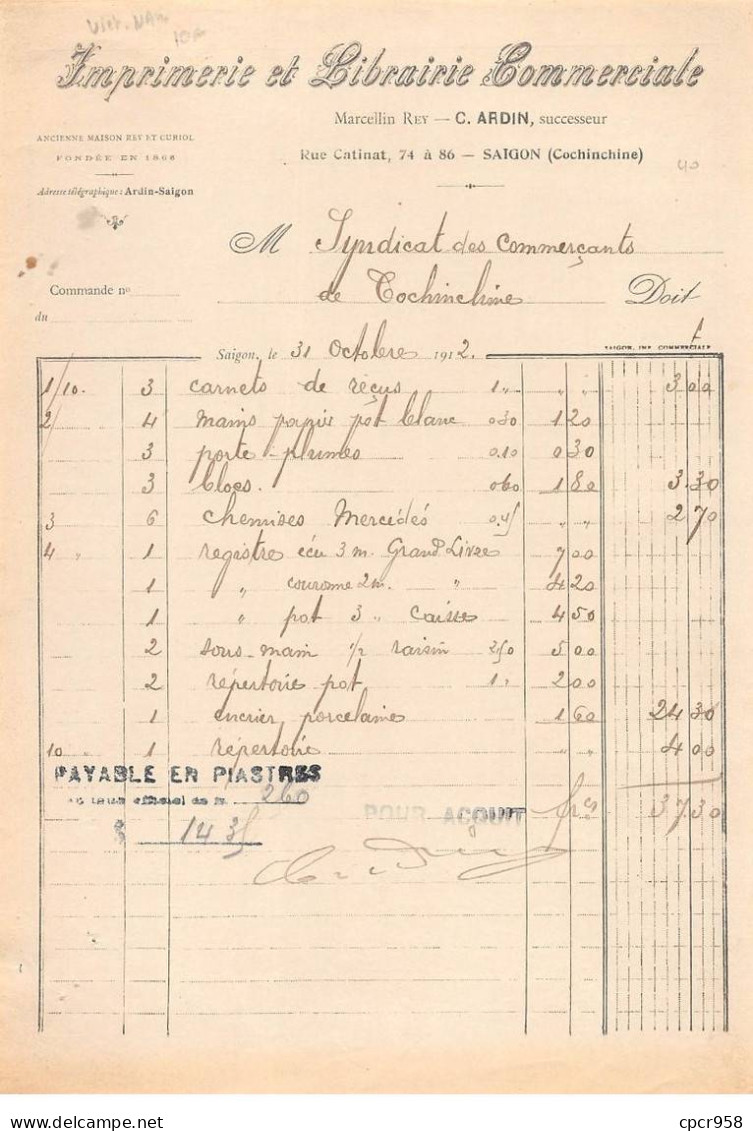 Viet-Nam
Imprimerie et Librairie Commerciale
Marcellin REY — C. ARDIN, successeur
ANCIENNE MAISON REY ET CURIOL
FONDÉE EN 1866
Rue Catinat, 74 à 86 — SAIGON (Cochinchine)
40
Adresse télégraphique : Ardin-Saigon
M Syndicat des Commerçants
Commande no
de Cochinchine Doit
du
SAIGON, IMP. COMMERCIALE
Saigon, le 31 Octobre 1912.
1/10. 3 carnets de reçus 1 " " " 3 00
2/ 4 mains papier pot blanc 0 30 1 20
3 porte-plumes 0.10 0 30
3 blocs. 0 60 1 80 3.30
3 6 chemises Mercédès 0.45 " " 2 70
4 " 1 registre écu 3 m. Grand Livre 7 00
1 " couronne 2 m. " 4 20
1 " pot 3 " Caisse 4 50
2 sous-main 1/2 raisin 2 50 5 00
2 répertoire pot 1 " 2 00
1 encrier porcelaine 1 60 24 30
10 " 1 répertoire " " 4 00
PAYABLE EN PIASTRES
au taux officiel de fr. 260
POUR ACQUIT frcs 37 30
$ 14 35
cpcr958